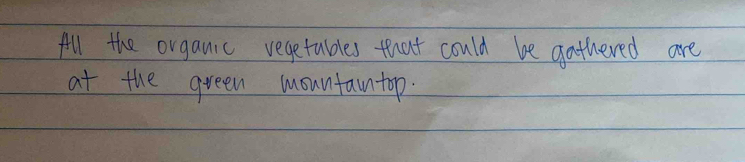 All the organic vegetables that could be gathered are
at the green mountaintop.